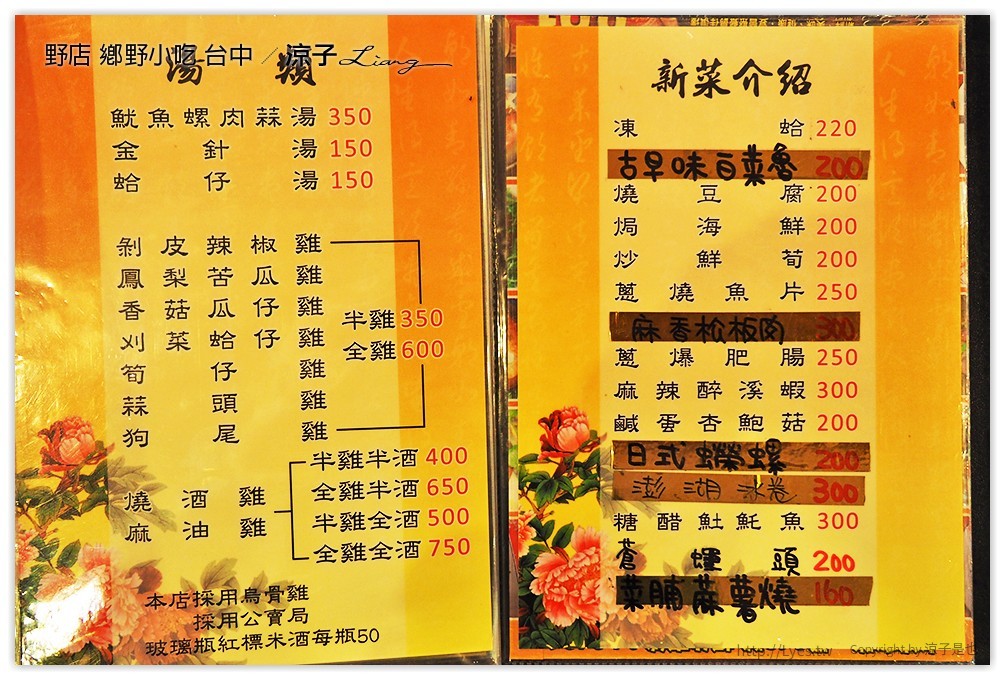 野店 鄉野小吃 台中 / 涼子 Liang
湯 類
魷魚螺肉蒜湯 350
金針湯 150
蛤仔湯 150
剝皮辣椒雞
鳳梨苦瓜雞
香菇瓜仔雞
刈菜蛤仔雞
筍仔雞
蒜頭雞
狗尾雞
半雞 350
全雞 600
燒酒雞
麻油雞
半雞半酒 400
全雞半酒 650
半雞全酒 500
全雞全酒 750
本店採用烏骨雞
採用公賣局
玻璃瓶紅標米酒每瓶50
新菜介紹
凍蛤 220
古早味白菜魯 200
燒豆腐 200
焗海鮮 200
炒鮮筍 200
蔥燒魚片 250
麻香松板肉 300
蔥爆肥腸 250
麻辣醉溪蝦 300
鹹蛋杏鮑菇 200
日式蠑螺 200
澎湖冰卷 300
糖醋䰾魠魚 300
蒼蠅頭 200
菜脯蔴薯燒 160
http://Lyes.tw Copyright by 涼子是也